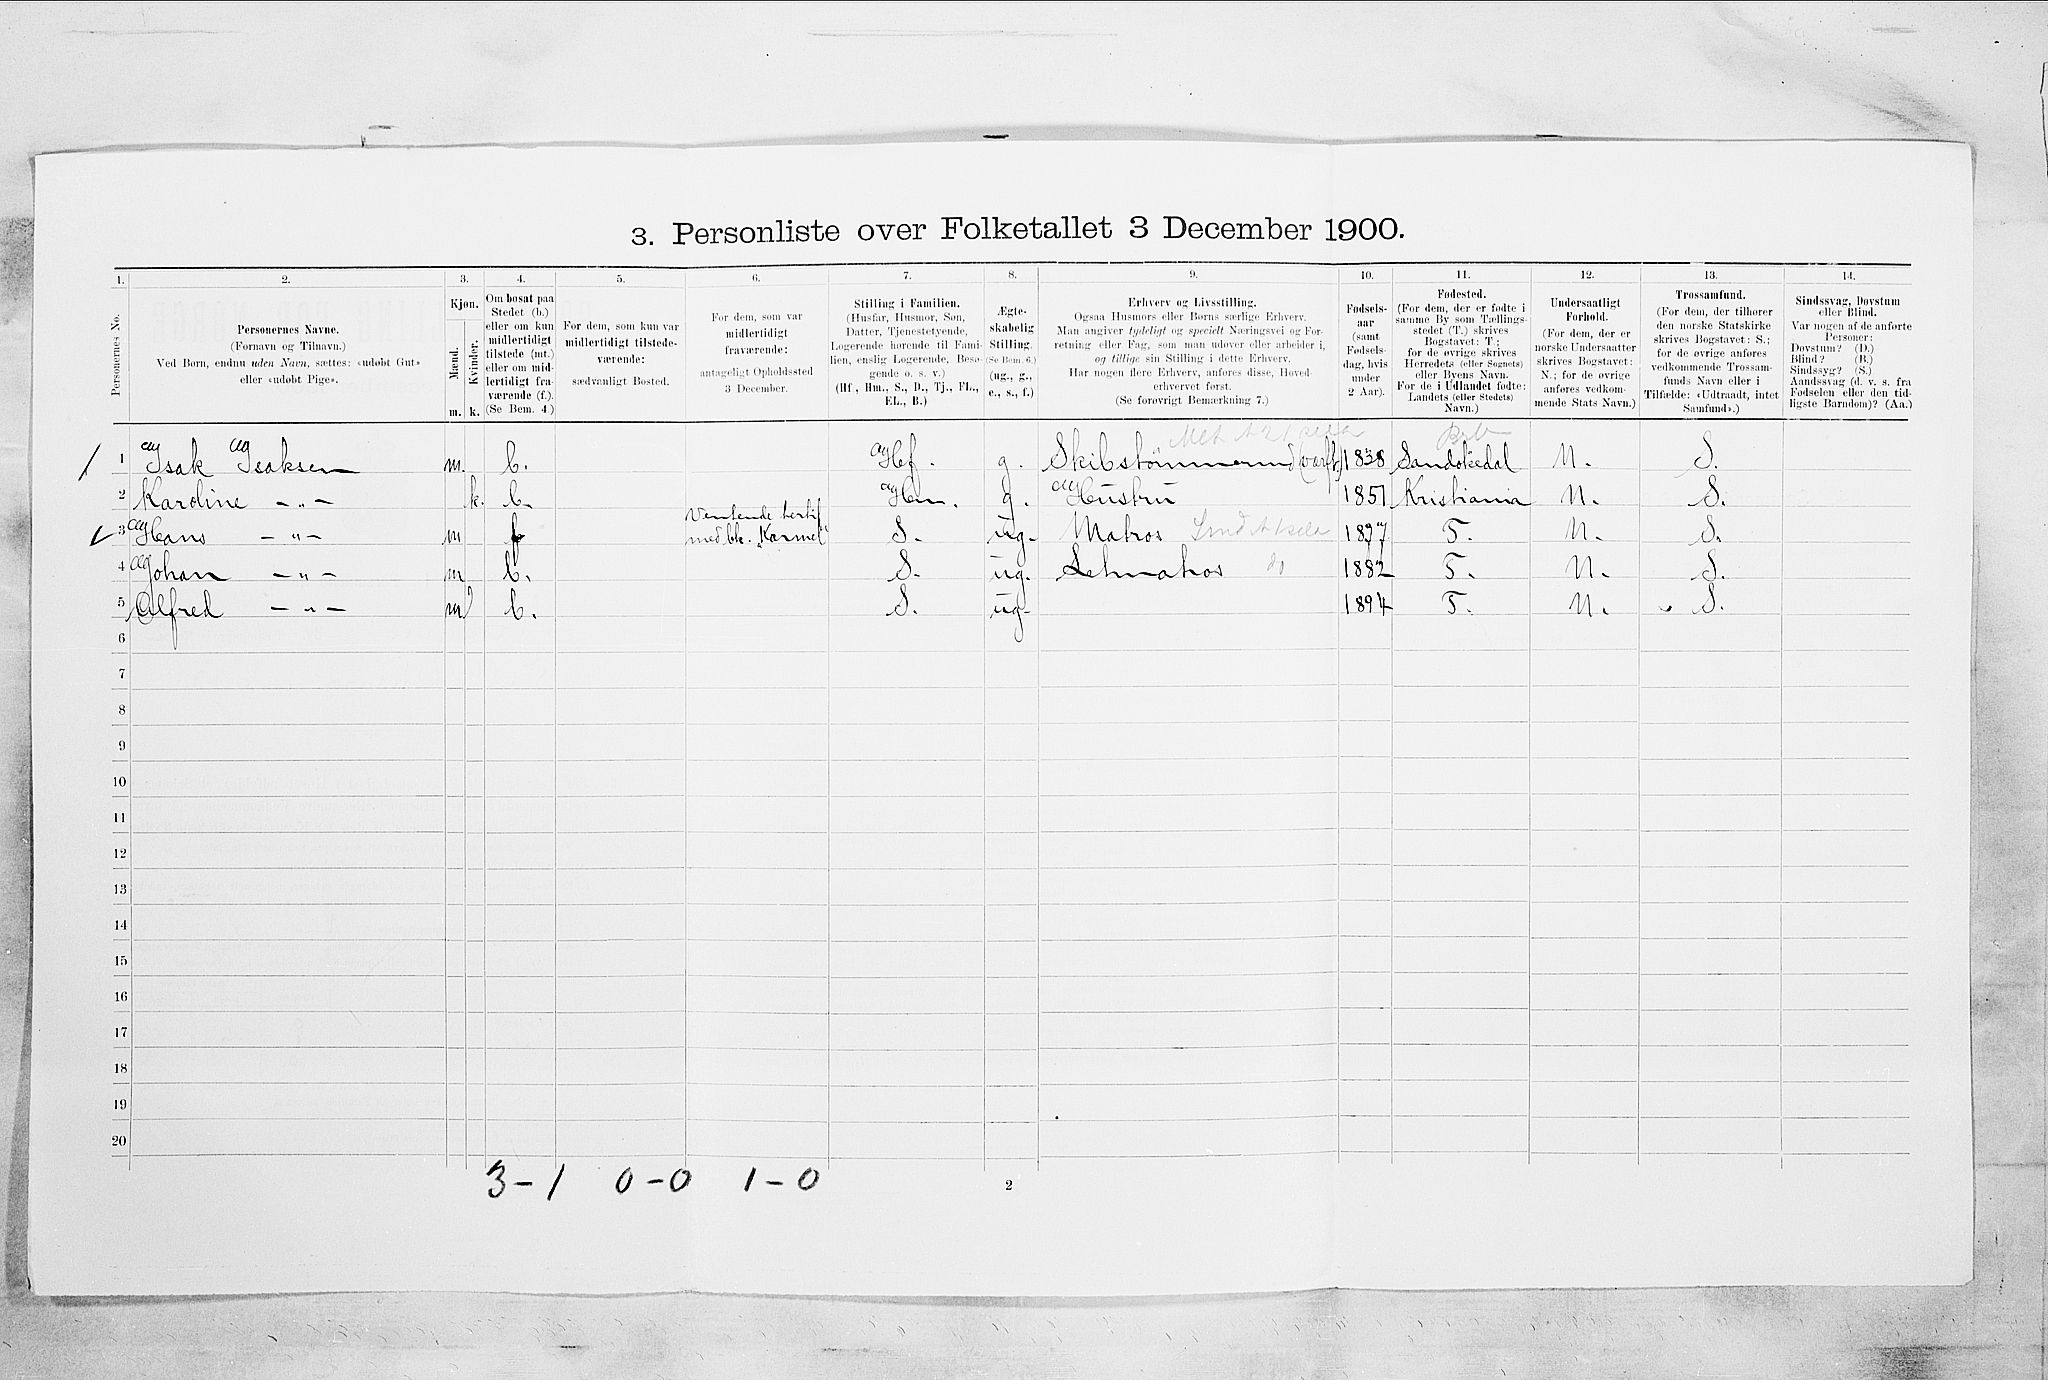 3. Personliste over Folketallet 3 December 1900.
1. 2. 3. 4. 5. 6. 7. 8. 9. 10. 11. 12. 13. 14.
Personernes No.
Personernes Navne.
(Fornavn og Tilnavn.)
Ved Børn, endnu uden Navn, sættes: «udøbt Gut»
eller «udøbt Pige».
Kjøn.
Mænd.
Kvinder.
m. k.
Om bosat paa
Stedet (b.)
eller om kun
midlertidigt
tilstede (mt.)
eller om mid-
lertidigt fra-
værende (f.).
(Se Bem. 4.)
For dem, som kun var
midlertidigt tilstede-
værende:
sædvanligt Bosted.
For dem, som var
midlertidigt
fraværende:
antageligt Opholdssted
3 December.
Stilling i Familien.
(Husfar, Husmor, Søn,
Datter, Tjenestetyende,
Logerende hørende til Fami-
lien, enslig Logerende, Besø-
gende o. s. v.)
(Hf., Hm., S., D., Tj., FL.,
EL., B.)
Ægte-
skabelig
Stilling.
(Se Bem. 6.)
(ug., g.,
e., s., f.)
Erhverv og Livsstilling.
Ogsaa Husmors eller Børns særlige Erhverv.
Man angiver tydeligt og specielt Næringsvei og For-
retning eller Fag, som man udøver eller arbeider i,
og tillige sin Stilling i dette Erhverv.
Har nogen flere Erhverv, anføres disse, Hoved-
erhvervet først.
(Se forøvrigt Bemærkning 7.)
Fødsels-
aar
(samt
Fødsels-
dag, hvis
under
2 Aar).
Fødested.
(For dem, der er fødte i
samme By som Tællings-
stedet (T.) skrives
Bogstavet: T.;
for de øvrige skrives
Herredets (eller Sognets)
eller Byens Navn.
For de i Udlandet fødte:
Landets (eller Stedets)
Navn.)
Undersaatligt
Forhold.
(For dem, der er
norske Undersaatter
skrives Bogstavet:
N.; for de øvrige
anføres vedkom-
mende Stats Navn.)
Trossamfund.
(For dem, der tilhører
den norske Statskirke
skrives Bogstavet: S.;
for de øvrige anføres
vedkommende Trossam-
funds Navn eller i
Tilfælde: «Udtraadt, intet
Samfund».)
Sindssvag, Døvstum
eller Blind.
Var nogen af de anførte
Personer:
Døvstum? (D.)
Blind? (B.)
Sindssyg? (S.)
Aandssvag (d. v. s. fra
Fødselen eller den tid-
ligste Barndom)? (Aa.)
1 Isak Isaksen m. b. Hf. g. Skibstømmermd (værft) 1838 Sandøkedal N. S.
2 Karoline — „ — k. b. Hm. g. Hustru 1851 Kristiania N. S.
3 Hans — „ — m f Ventende hertil
med bk. „Karmel" S. ug. Matros 1877 T. N. S.
4 Johan — „ — m b. S. ug. Letmatros do 1882 T. N. S.
5 Alfred — „ — m b. S. ug. 1894 T. N. S.
6
7
8
9
10
11
12
13
14
15
16
17
18
19
20
3 – 1 0 – 0 1 – 0
2